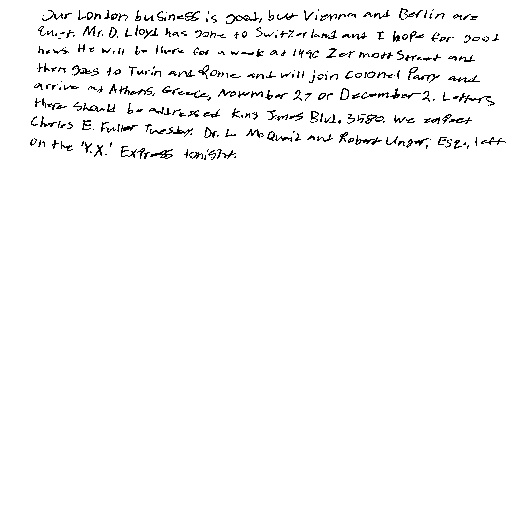 Our London business is good, but Vienna and Berlin are
quiet. Mr. D. Lloyd has gone to Switzerland and I hope for good
news. He will be there for a week at 1496 Zermott Street and
then goes to Turin and Rome and will join Colonel Parry and
arrive at Athens, Greece, November 27 or December 2. Letters
there should be addressed King James Blvd. 3580. We expect
Charles E. Fuller Tuesday. Dr. L. McQuaid and Robert Unger, Esq., left
on the 'Y.X.' Express tonight.